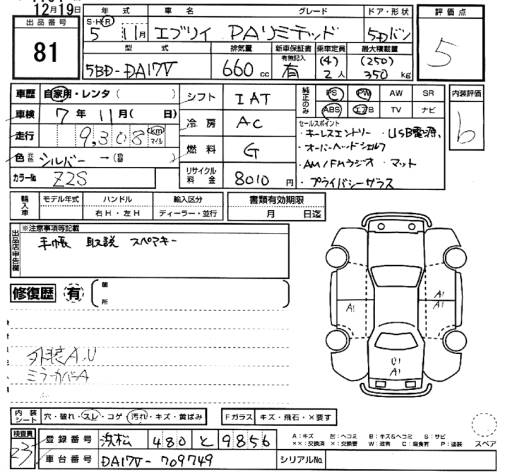 12月19日
出品番号
81
年式 グレード ドア・形状 評価点
S・H・R
5 11月 エブリイ PAリミテッド 5Dバン
5
型式 排気量 新車保証書 乗車定員 最大積載量
有無記入 (4) (250)
5BD-DA17V 660cc 有 2人 350kg
車歴 自家用・レンタ( ) シフト IAT 純正のみ PS PW AW SR 内装評価
車検 7年11月( 日) ABS エアB TV ナビ
b
走行 9,308 km マイル 冷房 AC
セールスポイント
・キーレスエントリー ・USB電源
・オーバーヘッドシェルフ
・AM/FMラジオ ・マット
・プライバシーガラス
色 元色 シルバー → (替 ) 燃料 G
カラーNo. Z2S リサイクル料金 8010円
輸入車 モデル年式 ハンドル 輸入区分 書類有効期限
右H・左H ディーラー・並行 月 日迄
出品店申告欄
※注意事項等記載
手帳 取説 スペアキー
修復歴 有 箇所
A1 A1
A1
外装A.U U1
ミラーカバーA A1
内装シート 穴・破れ・スレ・コゲ・汚れ・キズ・黄ばみ Fガラス キズ・飛石・×要す
スペア
検査員 登録番号 浜松 480 と 9856
A:キズ U:ヘコミ B:キズ&ヘコミ S:サビ
××:交換済 ×:要交換 W:波有 C:腐食有 P:塗装
23 車台番号 DA17V-709749 シリアルNo.